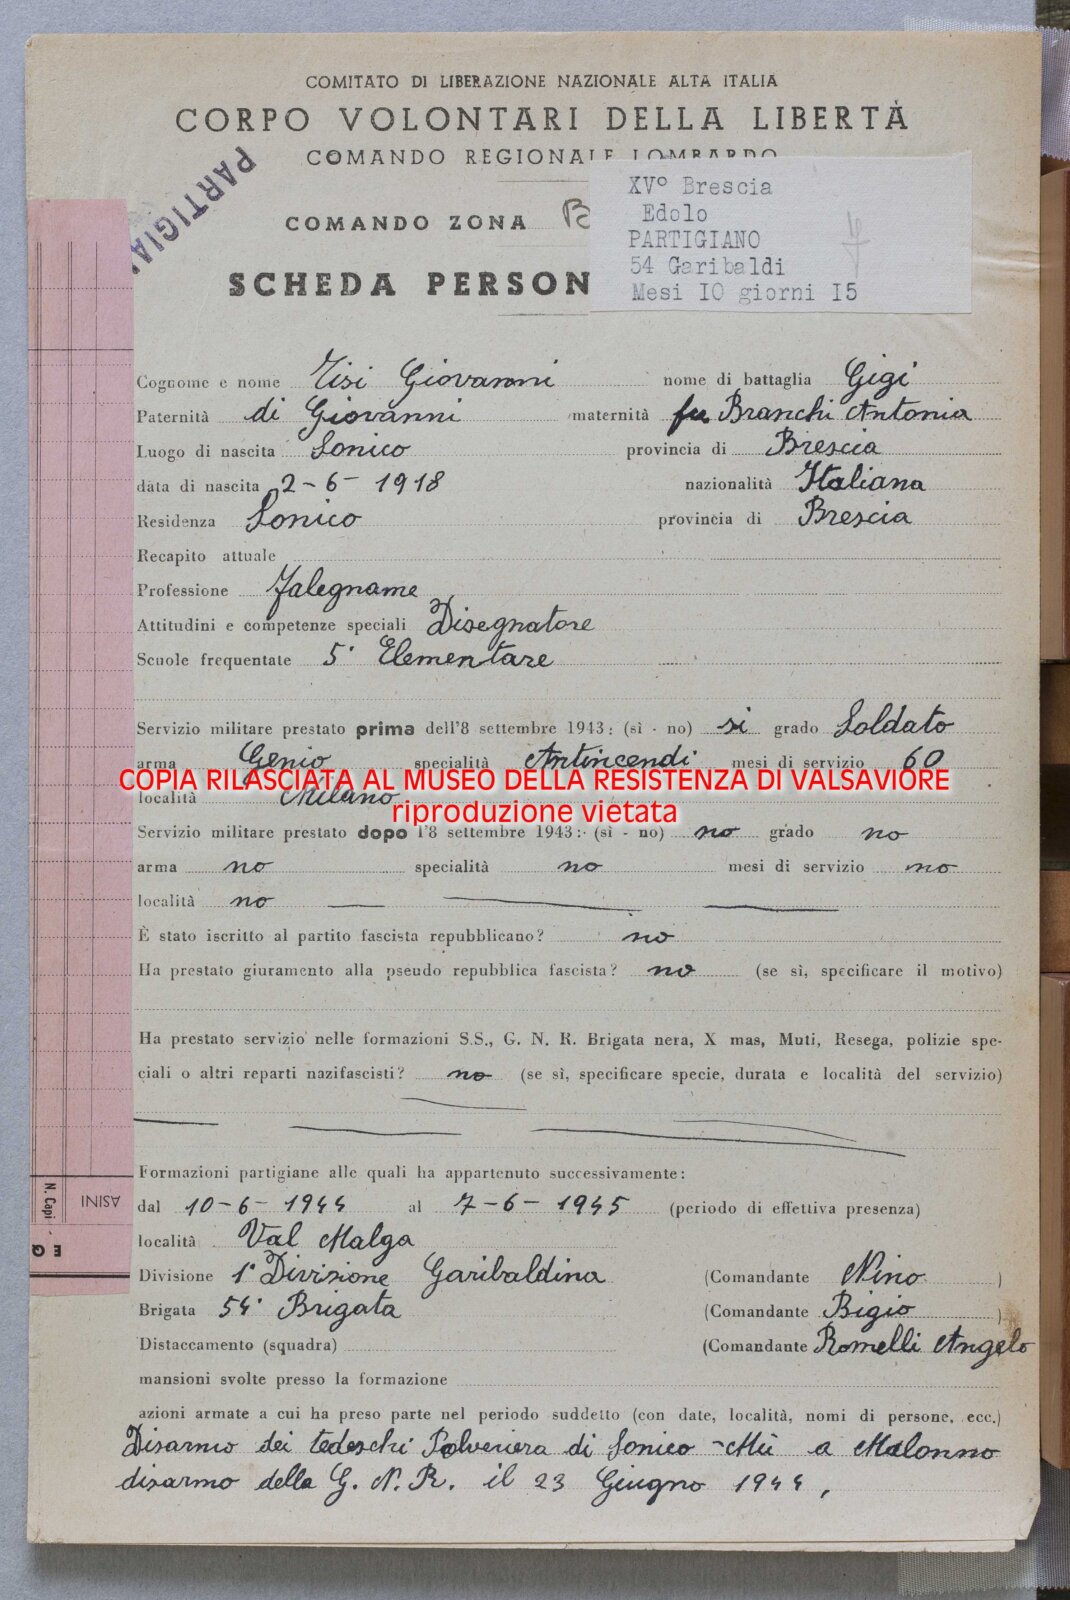 COMITATO DI LIBERAZIONE NAZIONALE ALTA ITALIA
CORPO VOLONTARI DELLA LIBERTÀ
COMANDO REGIONALE LOMBARDO
PARTIGIA
COMANDO ZONA
SCHEDA PERSON
XV° Brescia
Edolo
PARTIGIANO
54 Garibaldi
Mesi IO giorni I5
Cognome e nome Tisi Giovanni nome di battaglia Gigi
Paternità di Giovanni maternità fu Branchi Antonia
Luogo di nascita Sonico provincia di Brescia
data di nascita 2-6-1918 nazionalità Italiana
Residenza Sonico provincia di Brescia
Recapito attuale
Professione Falegname
Attitudini e competenze speciali Disegnatore
Scuole frequentate 5ª Elementare
Servizio militare prestato prima dell'8 settembre 1943: (sì - no) si grado Soldato
arma Genio specialità Antincendi mesi di servizio 60
COPIA RILASCIATA AL MUSEO DELLA RESISTENZA DI VALSAVIORE
località Milano
riproduzione vietata
Servizio militare prestato dopo l'8 settembre 1943: (sì - no) no grado no
arma no specialità no mesi di servizio no
località no
È stato iscritto al partito fascista repubblicano? no
Ha prestato giuramento alla pseudo repubblica fascista? no (se sì, specificare il motivo)
Ha prestato servizio nelle formazioni S.S., G. N. R. Brigata nera, X mas, Muti, Resega, polizie spe-
ciali o altri reparti nazifascisti? no (se sì, specificare specie, durata e località del servizio)
Formazioni partigiane alle quali ha appartenuto successivamente:
dal 10-6-1944 al 7-6-1945 (periodo di effettiva presenza)
località Val Malga
Divisione 1ª Divisione Garibaldina (Comandante Nino )
Brigata 54ª Brigata (Comandante Bigio )
Distaccamento (squadra) (Comandante Romelli Angelo
mansioni svolte presso la formazione
azioni armate a cui ha preso parte nel periodo suddetto (con date, località, nomi di persone, ecc.)
Disarmo dei tedeschi Polveriera di Sonico - Mù a Malonno
disarmo della G. N. R. il 23 Giugno 1944,
N. Capi
ASINI
EQ